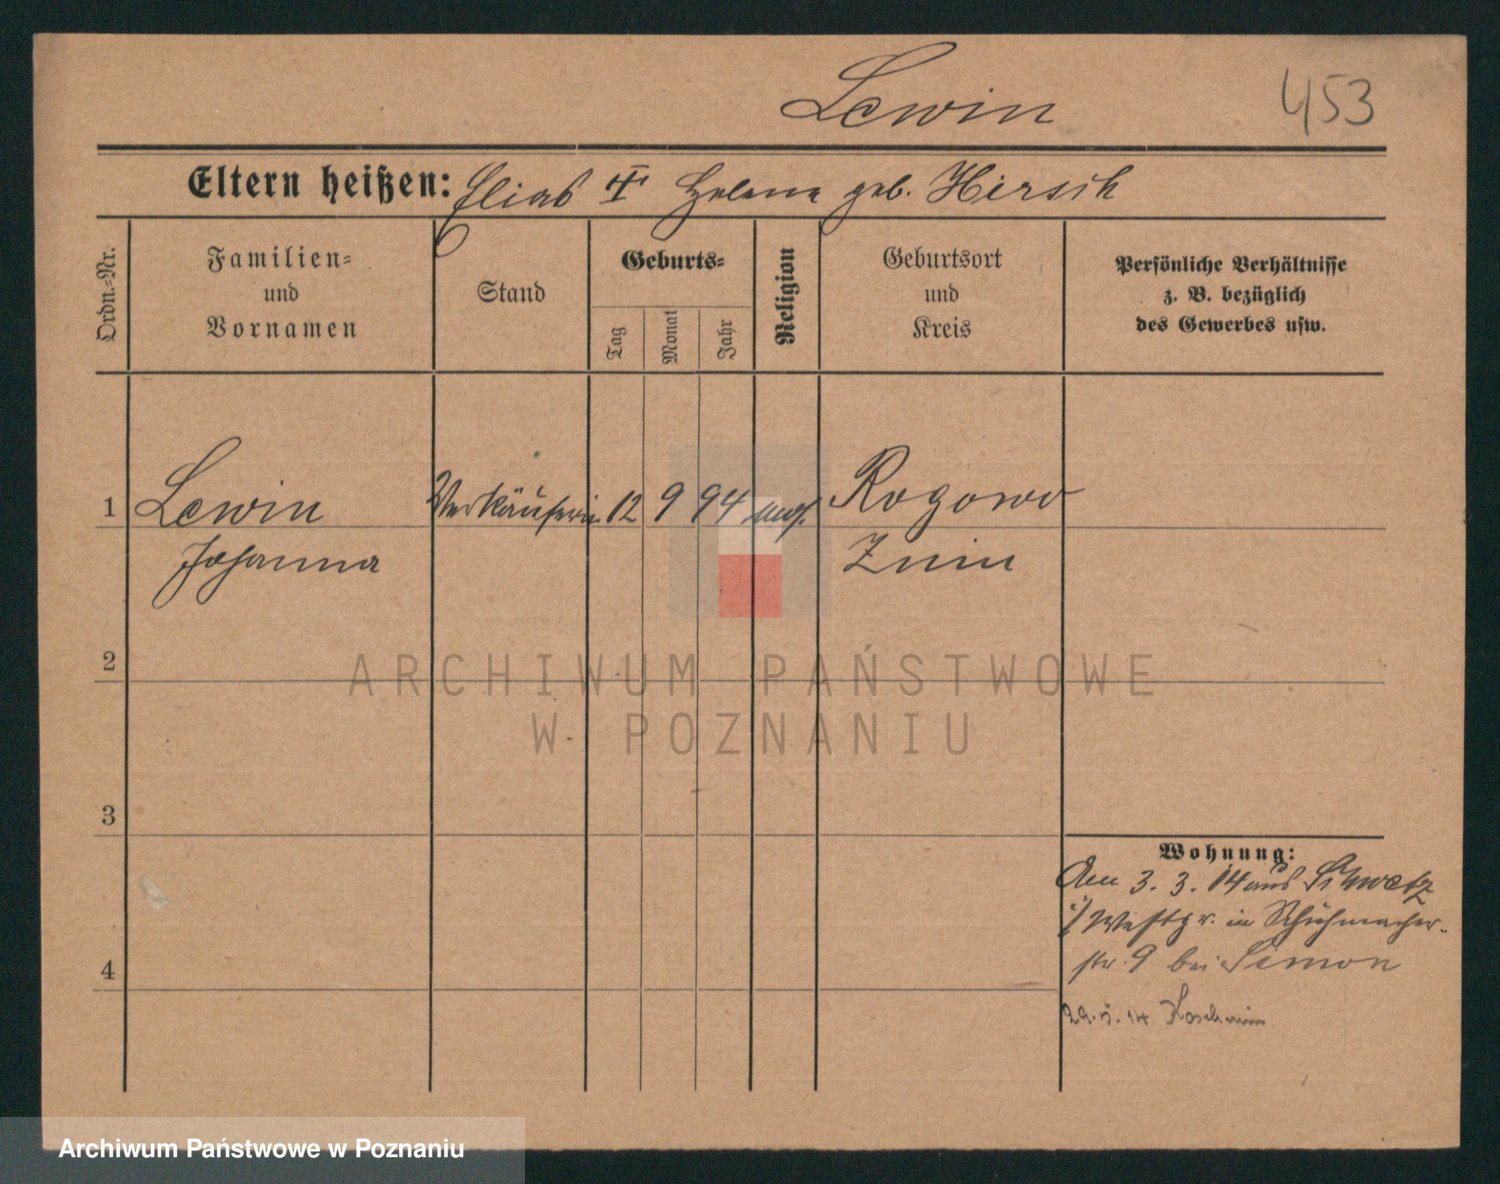 Lewin 453
Eltern heißen: Elias † Helene geb. Hirsch
Ordn.-Nr.
Familien-
und
Vornamen
Stand
Geburts-
Tag
Monat
Jahr
Religion
Geburtsort
und
Kreis
Persönliche Verhältnisse
z. B. bezüglich
des Gewerbes usw.
1 Lewin Verkäuferin 12 9 94 mos. Rogowo
Johanna Znin
2
3
4
Wohnung:
Am 3. 3. 14 aus Schwetz
i/ Westpr. in Schuhmacher-
str. 9 bei Simon
29.5.14 Koschmin
ARCHIWUM PAŃSTWOWE
W POZNANIU
Archiwum Państwowe w Poznaniu